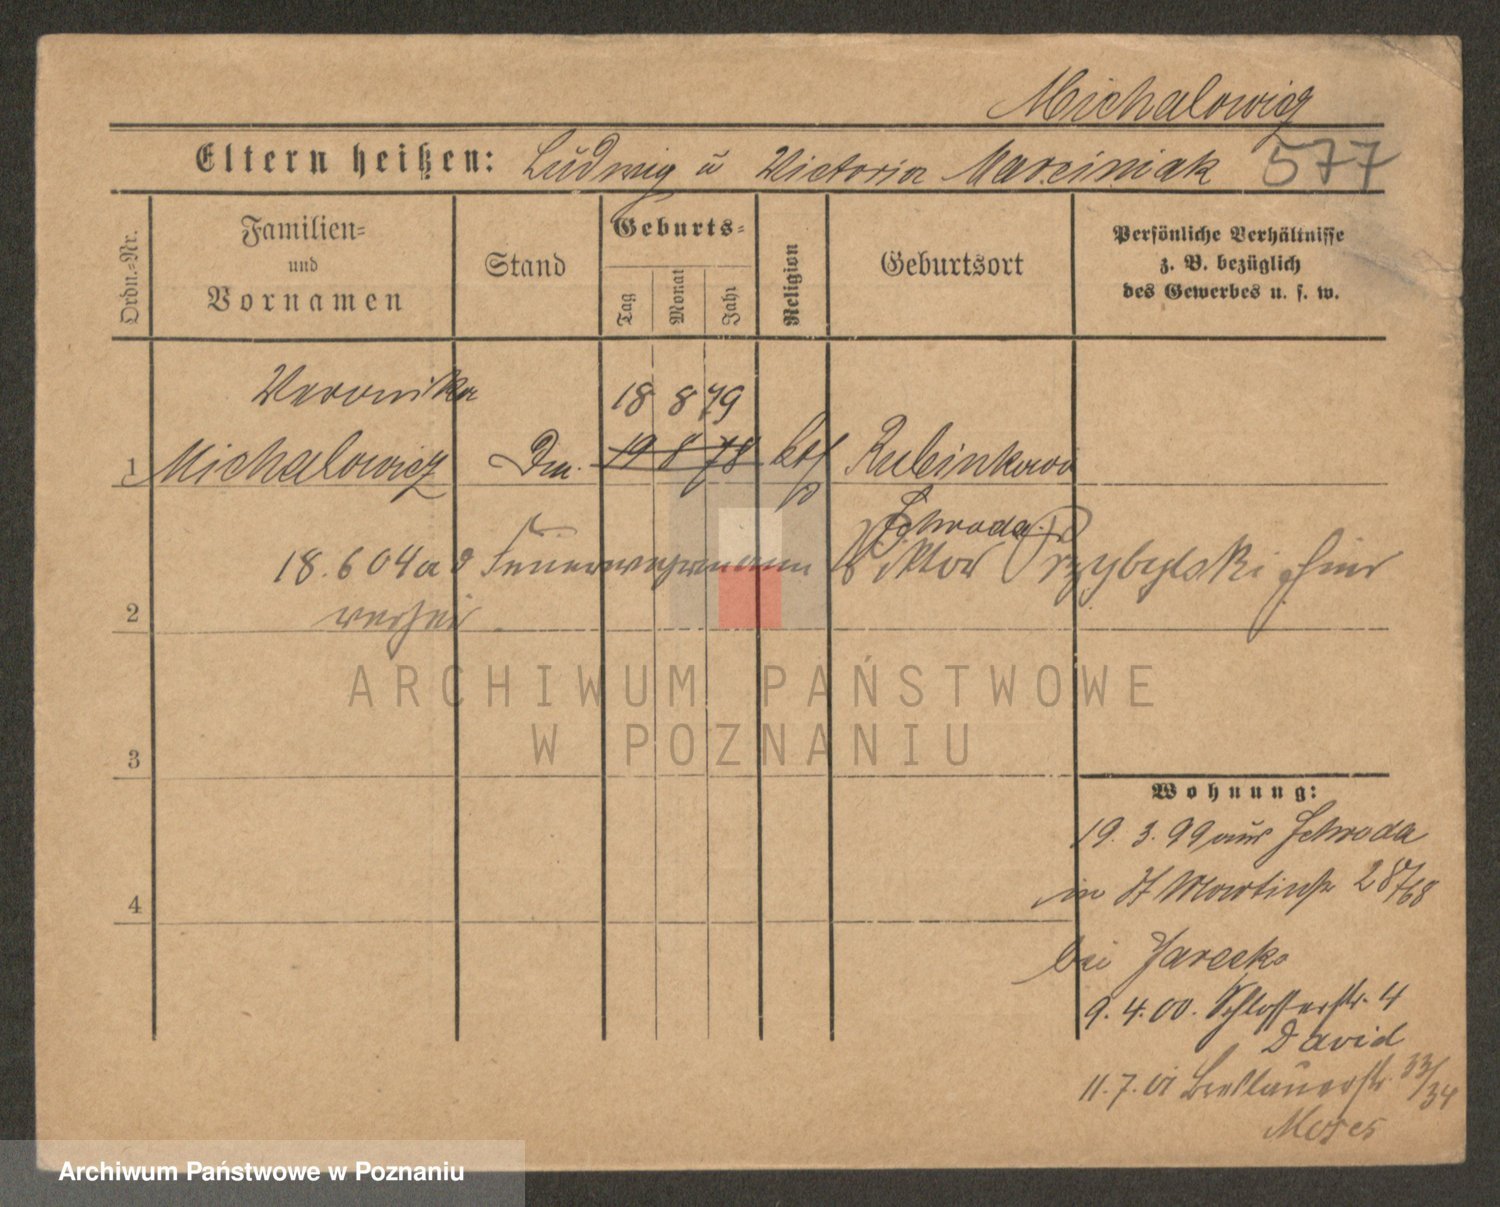 Michalowicz
Eltern heißen: Ludwig u Victoria Marciniak 577
Ordn.-Nr.
Familien-
und
Vornamen
Stand
Geburts-
Tag
Monat
Jahr
Religion
Geburtsort
Persönliche Verhältnisse
z. B. bezüglich
des Gewerbes u. s. w.
Veronika 18 8 79
1 Michalowicz 19 8 78 kth Rubinkowo
Schroda
18.6 04 a d Feuerwehrmann Viktor Przybylski hier
2
ARCHIWUM PAŃSTWOWE
W POZNANIU
3
Wohnung:
19. 3. 99 aus Schroda
in St Martinstr 28/68
4
bei Jarecki
9. 4. 00. Schlosserstr. 4
David
11. 7. 01 Breslauerstr. 33/34
Moses
Archiwum Państwowe w Poznaniu